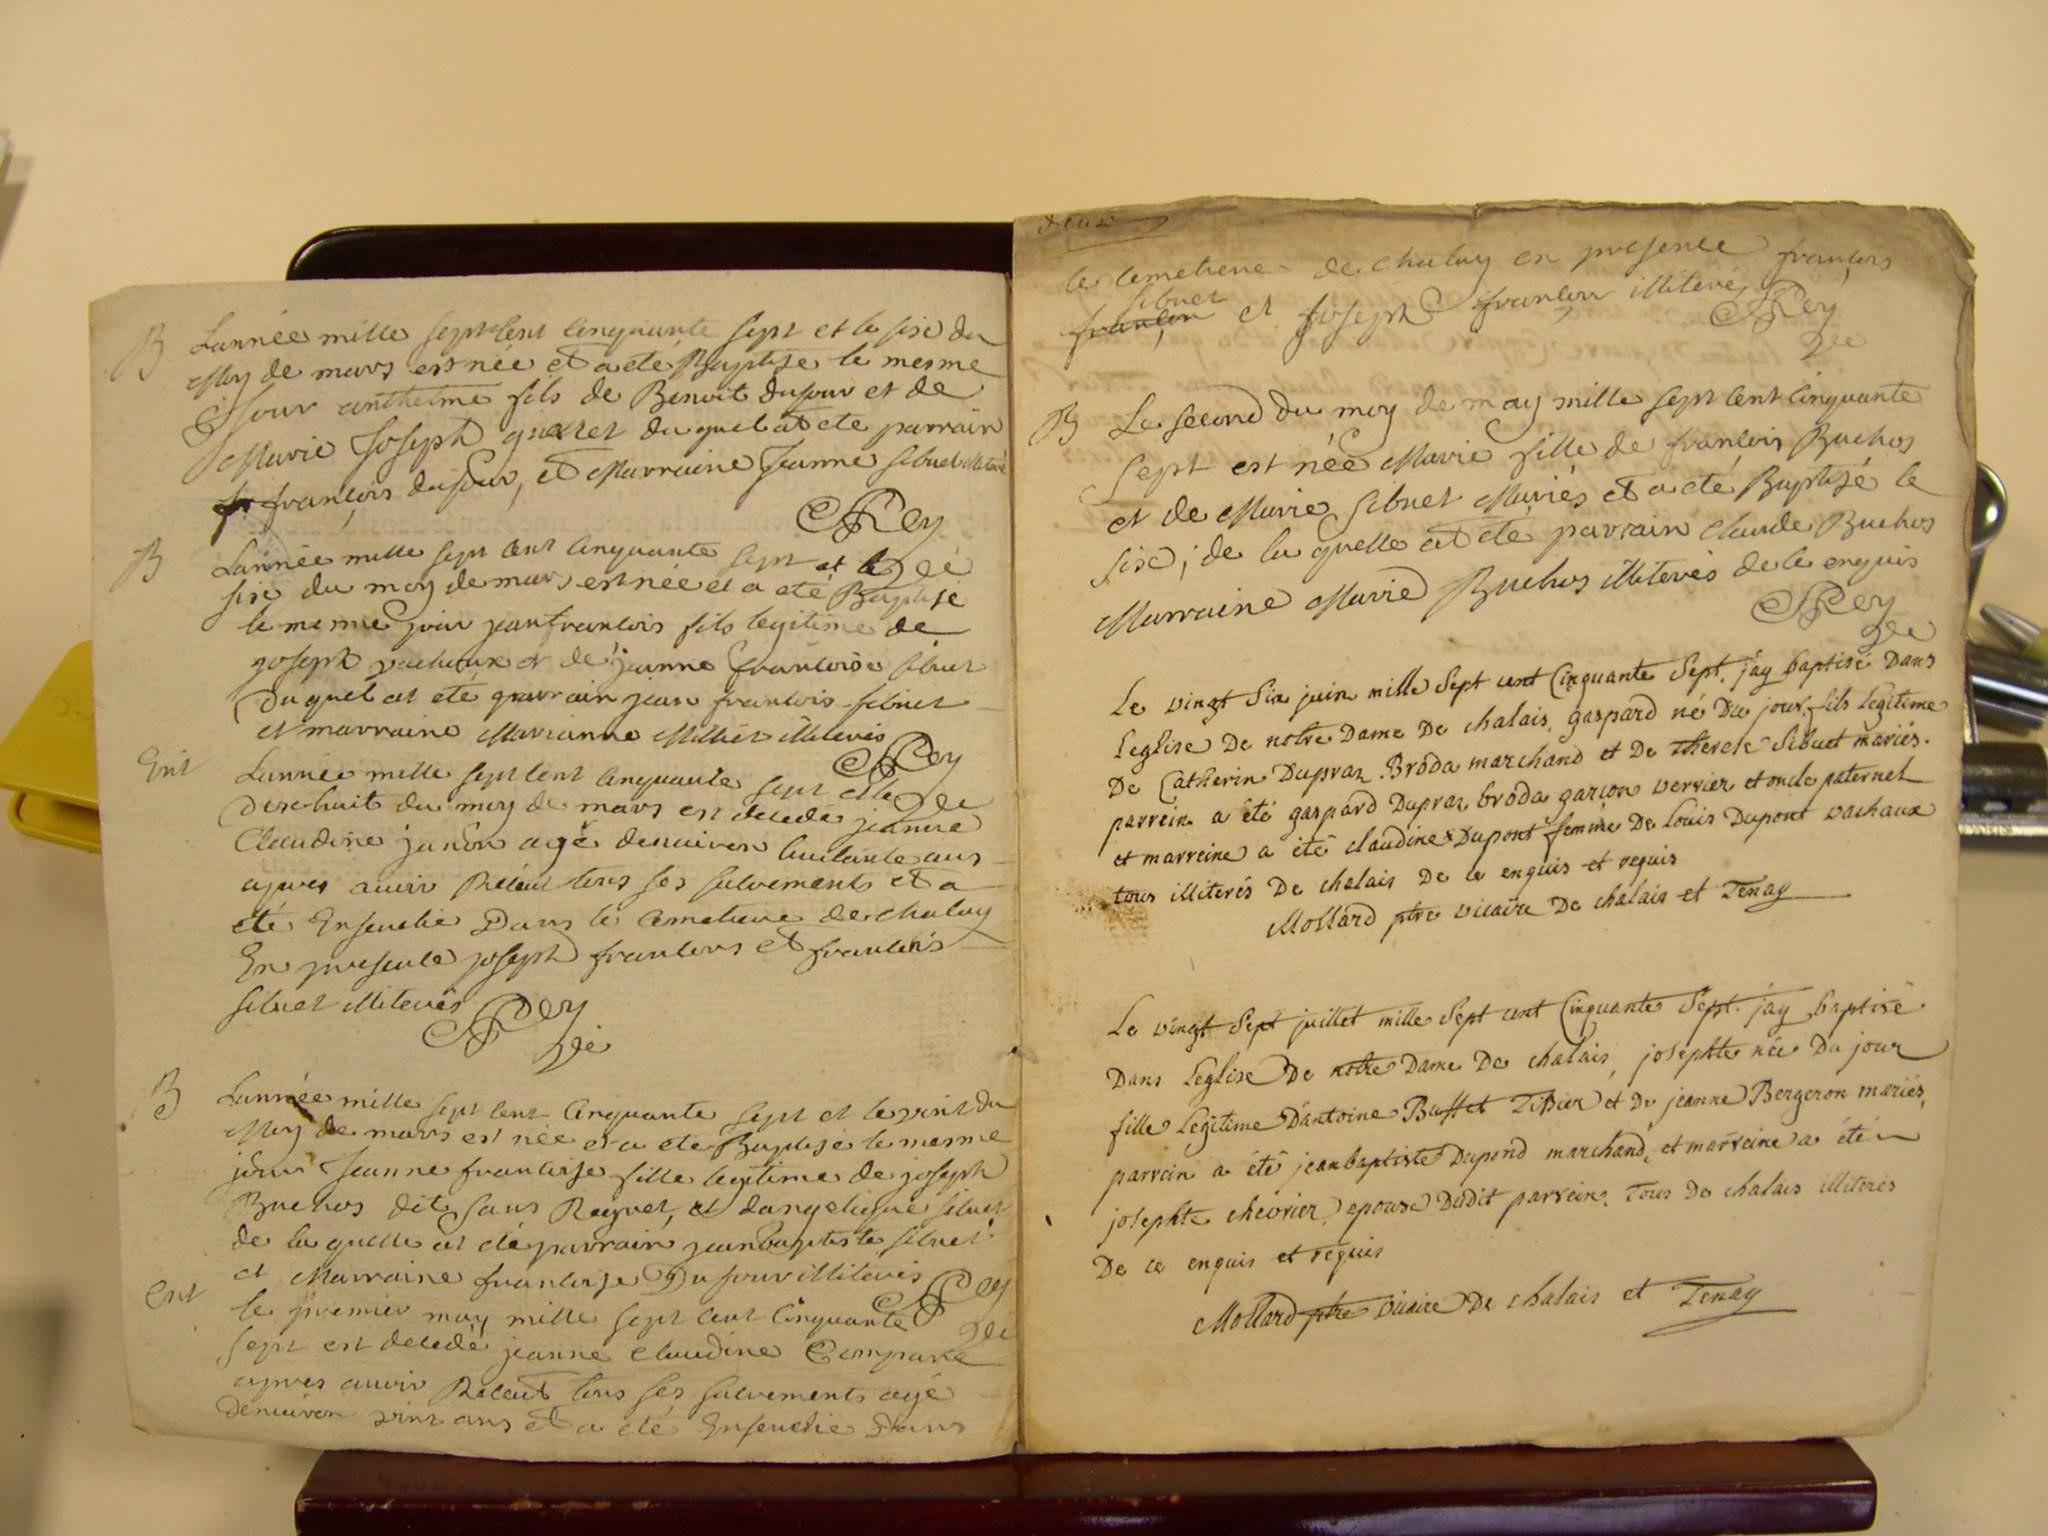 B Lannée mille sept cent cinquante sept et le sise du
Moy de mars est née et a eté Baptise le mesme
Jour anthelme fils de Benoit dufour et de
Marie Joseph du quel at ete parrain
françois dufour, et Marraine Jeanne sibuet illiteré
Rey
B Lannée mille sept cent cinquante sept et le
sise du moy de mars est née et a eté Baptisé
le mesme jour jean francois fils legitime de
joseph vachaux et de jeanne francoise sibuet
Du quel at eté parrain jean francois sibuet
et marraine Marianne Millier illiterés
Rey
Ent Lannée mille sept cent cinquante sept et le
Dise huit du moy de mars est decedé jeanne
Claudine agé denuiron huitante ans
apres auoir Receut tous ses sacrements et a
eté Enseuelie Dans le Cemetiere de chalay
En presence joseph francois et francois
sibuet illiterés
Rey
B Lannée mille sept cent cinquante sept et le vint du
Moy de mars est née et a eté Baptisé le mesme
jour Jeanne francoise fille legitime de joseph
Buchos dit sans Regret, et dangelique sibuet
de la quelle at eté parrain jean baptiste sibuet
et Marraine francoise Dufour illiterés
Rey
Ent le premier may mille sept cent cinquante
sept est decedé jeanne claudine Compare
apres auoir Receut tous ses sacrements agé
denuiron vint ans et a eté Enseuelie Dans
deux
le Cemetiere de chalay en presence françois
sibuet
françois et joseph françois illiterés
Rey
B Le second du moy de may mille sept cent cinquante
sept est née Marie fille de françois Buchos
et de Marie sibuet Mariés et a eté Baptisé le
sise; de la quelle at eté parrain claude Buchos
Marraine Marie Buchos illiterés de ce enquis
Rey
Le vingt six juin mille sept cent cinquante sept. j'ay baptisé Dans
l'eglise De notre Dame De chalais, gaspard né Du jour, fils legitime
De Catherin Dupraz Broda marchand et De Therese Sibuet mariés.
parrein a été gaspard Dupraz broda garçon verrier et oncle paternel
et marreine a été claudine Dupont femme De Louis Dupont vachaux
tous illiterés De chalais De ce enquis et requis
Mollard ptre vicaire De chalais et Tenay
Le vingt sept juillet mille sept cent cinquante sept. j'ay baptisé
Dans l'eglise De notre Dame De chalais, josephte née Du jour
fille legitime D'antoine Buffet Tissier et De jeanne Bergeron mariés,
parrein a été jean baptiste Dupond marchand, et marreine a été
josephte chevrier, epouse Dudit parrein. Tous De chalais illiterés
De ce enquis et requis
Mollard ptre vicaire De chalais et Tenay